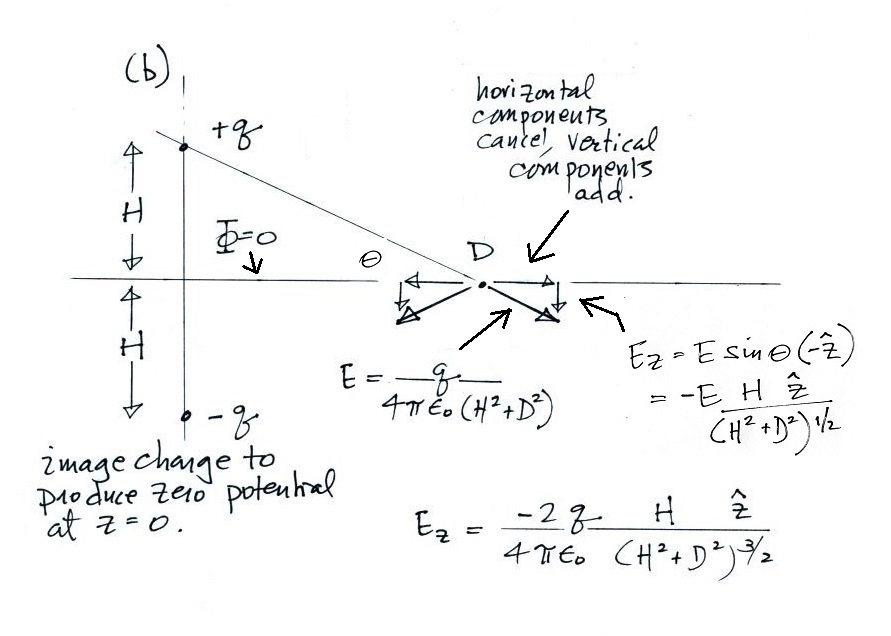 (b)
+q
horizontal
components
cancel, vertical
components
add.
H
Φ=0
θ
D
H
E = q / 4πε₀ (H²+D²)
E_z = E sinθ (-ẑ)
= -E H ẑ / (H²+D²)^1/2
-q
image charge to
produce zero potential
at z=0.
E_z = -2q / 4πε₀ H ẑ / (H²+D²)^3/2